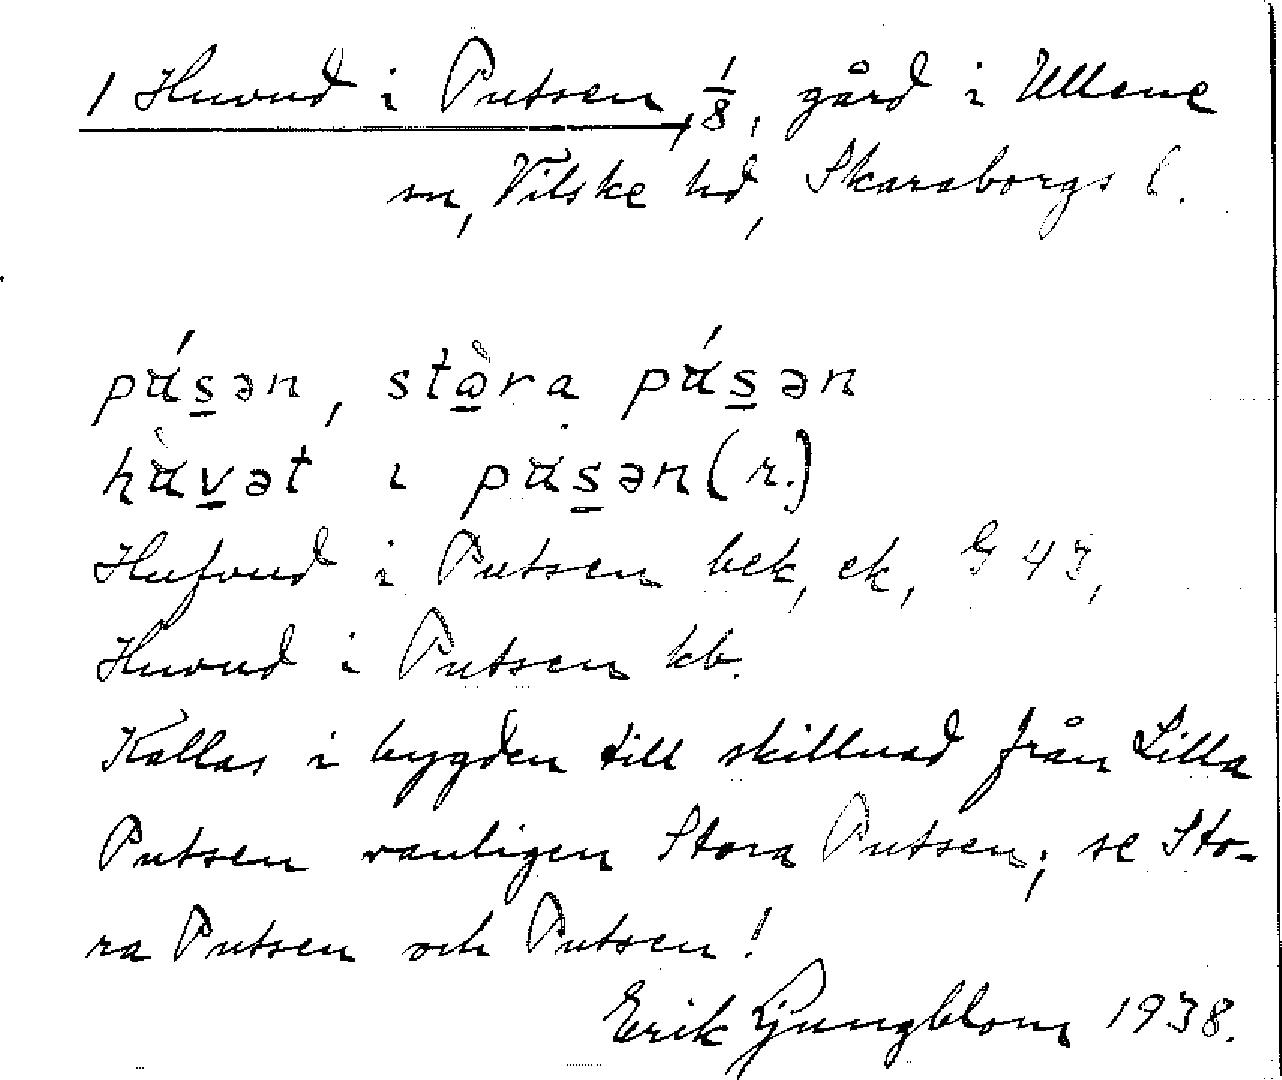 1 Huvud i Putsen, 1/8, gård i Ullene
sn, Vilske hd, Skaraborgs l.
pásən, stòra pásən
hàvət ı pásən (r.)
Hufvud i Putsen bek, ek, G 43,
Huvud i Putsen kb.
Kallas i bygden till skillnad från Lilla
Putsen vanligen Stora Putsen; se Sto-
ra Putsen och Putsen!
Erik Ljungblom 1938.